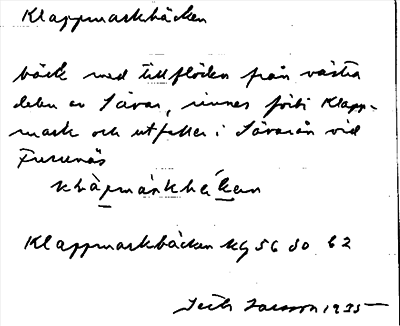 Klappmarkbäcken
bäck med tillflöden från västra
delen av Sävar, rinner förbi Klapp-
mark och utfaller i Sävarån vid
Furunäs
Klappmarkbäcken kg 56 50 62
Larsson 1935